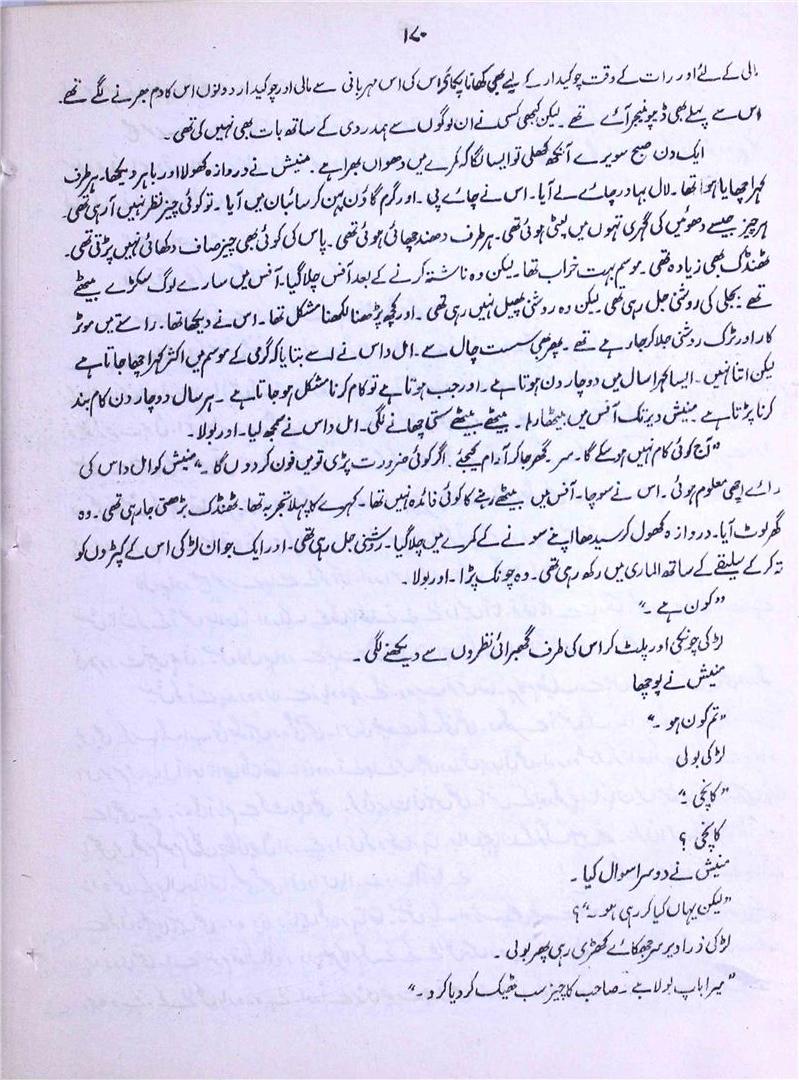 ۱۷۰
مالی کے لئے اور رات کے وقت چوکیدار کے لیے بھی کھانا پکتا۔ اس کی اس مہربانی سے مالی اور چوکیدار دونوں اس کا دم بھرنے لگے تھے
اس سے پہلے بھی ڈپو منیجر آئے تھے۔ لیکن کبھی کسی نے ان لوگوں سے ہمدردی کے ساتھ بات بھی نہیں کی تھی۔
ایک دن صبح سویرے آنکھ کھلی تو ایسا لگا کہ کمرے میں دھواں بھرا ہے۔ منیش نے دروازہ کھولا اور باہر دیکھا۔ ہر طرف
کہرا چھایا ہوا تھا۔ لال بہادر چائے لے آیا۔ اس نے چائے پی۔ اور گرم گاؤن پہن کر سائبان میں آیا۔ تو کوئی چیز نظر نہیں آ رہی تھی۔
ہر چیز جیسے دھوئیں کی گہری تہوں میں لپٹی ہوئی تھی۔ ہر طرف دھند چھائی ہوئی تھی۔ پاس کی کوئی بھی چیز صاف دکھائی نہیں پڑتی تھی۔
ٹھنڈک بھی زیادہ تھی۔ موسم بہت خراب تھا۔ لیکن وہ ناشتہ کرنے کے بعد آفس چلا گیا۔ آفس میں سارے لوگ سکڑے بیٹھے
تھے۔ بجلی کی روشنی جل رہی تھی۔ لیکن وہ روشنی پھیل نہیں رہی تھی۔ اور کچھ پڑھنا لکھنا مشکل تھا۔ اس نے دیکھا تھا۔ راستے میں موٹر
کار اور ٹرک روشنی جلا کر جا رہے تھے۔ پھر بھی سست چال سے۔ امل داس نے اسے بتایا کہ گرمی کے موسم میں اکثر کہرا چھا جاتا ہے
لیکن اتنا نہیں۔ ایسا کہرا سال میں دو چار دن ہوتا ہے۔ اور جب ہوتا ہے تو کام کرنا مشکل ہو جاتا ہے۔ ہر سال دو چار دن کام بند
کرنا پڑتا ہے۔ منیش دیر تک آفس میں بیٹھا رہا۔ بیٹھے بیٹھے سستی چھانے لگی۔ امل داس نے سمجھ لیا۔ اور بولا۔
”آج کوئی کام نہیں ہو سکے گا۔ سر۔ گھر جا کر آرام کیجئے۔ اگر کوئی ضرورت پڑی تو میں فون کر دوں گا۔“ منیش کو امل داس کی
رائے اچھی معلوم ہوئی۔ اس نے سوچا۔ آفس میں بیٹھے رہنے کا کوئی فائدہ نہیں تھا۔ کہرے کا پہلا تجربہ تھا۔ ٹھنڈک بڑھتی جا رہی تھی۔ وہ
گھر لوٹ آیا۔ دروازہ کھول کر سیدھا اپنے سونے کے کمرے میں چلا گیا۔ روشنی جل رہی تھی۔ اور ایک جوان لڑکی اس کے کپڑوں کو
تہ کر کے سلیقے کے ساتھ الماری میں رکھ رہی تھی۔ وہ چونک پڑا۔ اور بولا۔
”کون ہے۔“
لڑکی چونکی اور پلٹ کر اس کی طرف گھبرائی نظروں سے دیکھنے لگی۔
منیش نے پوچھا
”تم کون ہو۔“
لڑکی بولی
”کانچی۔“
کانچی؟
منیش نے دوسرا سوال کیا۔
”لیکن یہاں کیا کر رہی ہو۔“؟
لڑکی ذرا دیر سر جھکائے کھڑی رہی پھر بولی۔
”میرا باپ بولا ہے۔ صاحب کا چیز سب ٹھیک کر دیا کرو۔“